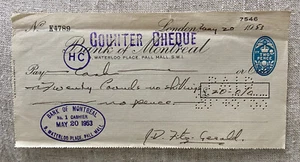 7546
No K4789 London May 20 1953
COUNTER CHEQUE
Bank of Montreal
HC 9, WATERLOO PLACE, PALL MALL, S.W.1.
TWO PENCE
Pay Cash or
Twenty Pounds no shillings
no pence £20-0-0
BANK OF MONTREAL
No. 1 CASHIER
MAY 20 1953
9, WATERLOO PLACE, PALL MALL
J.D. Fitz Gerald.